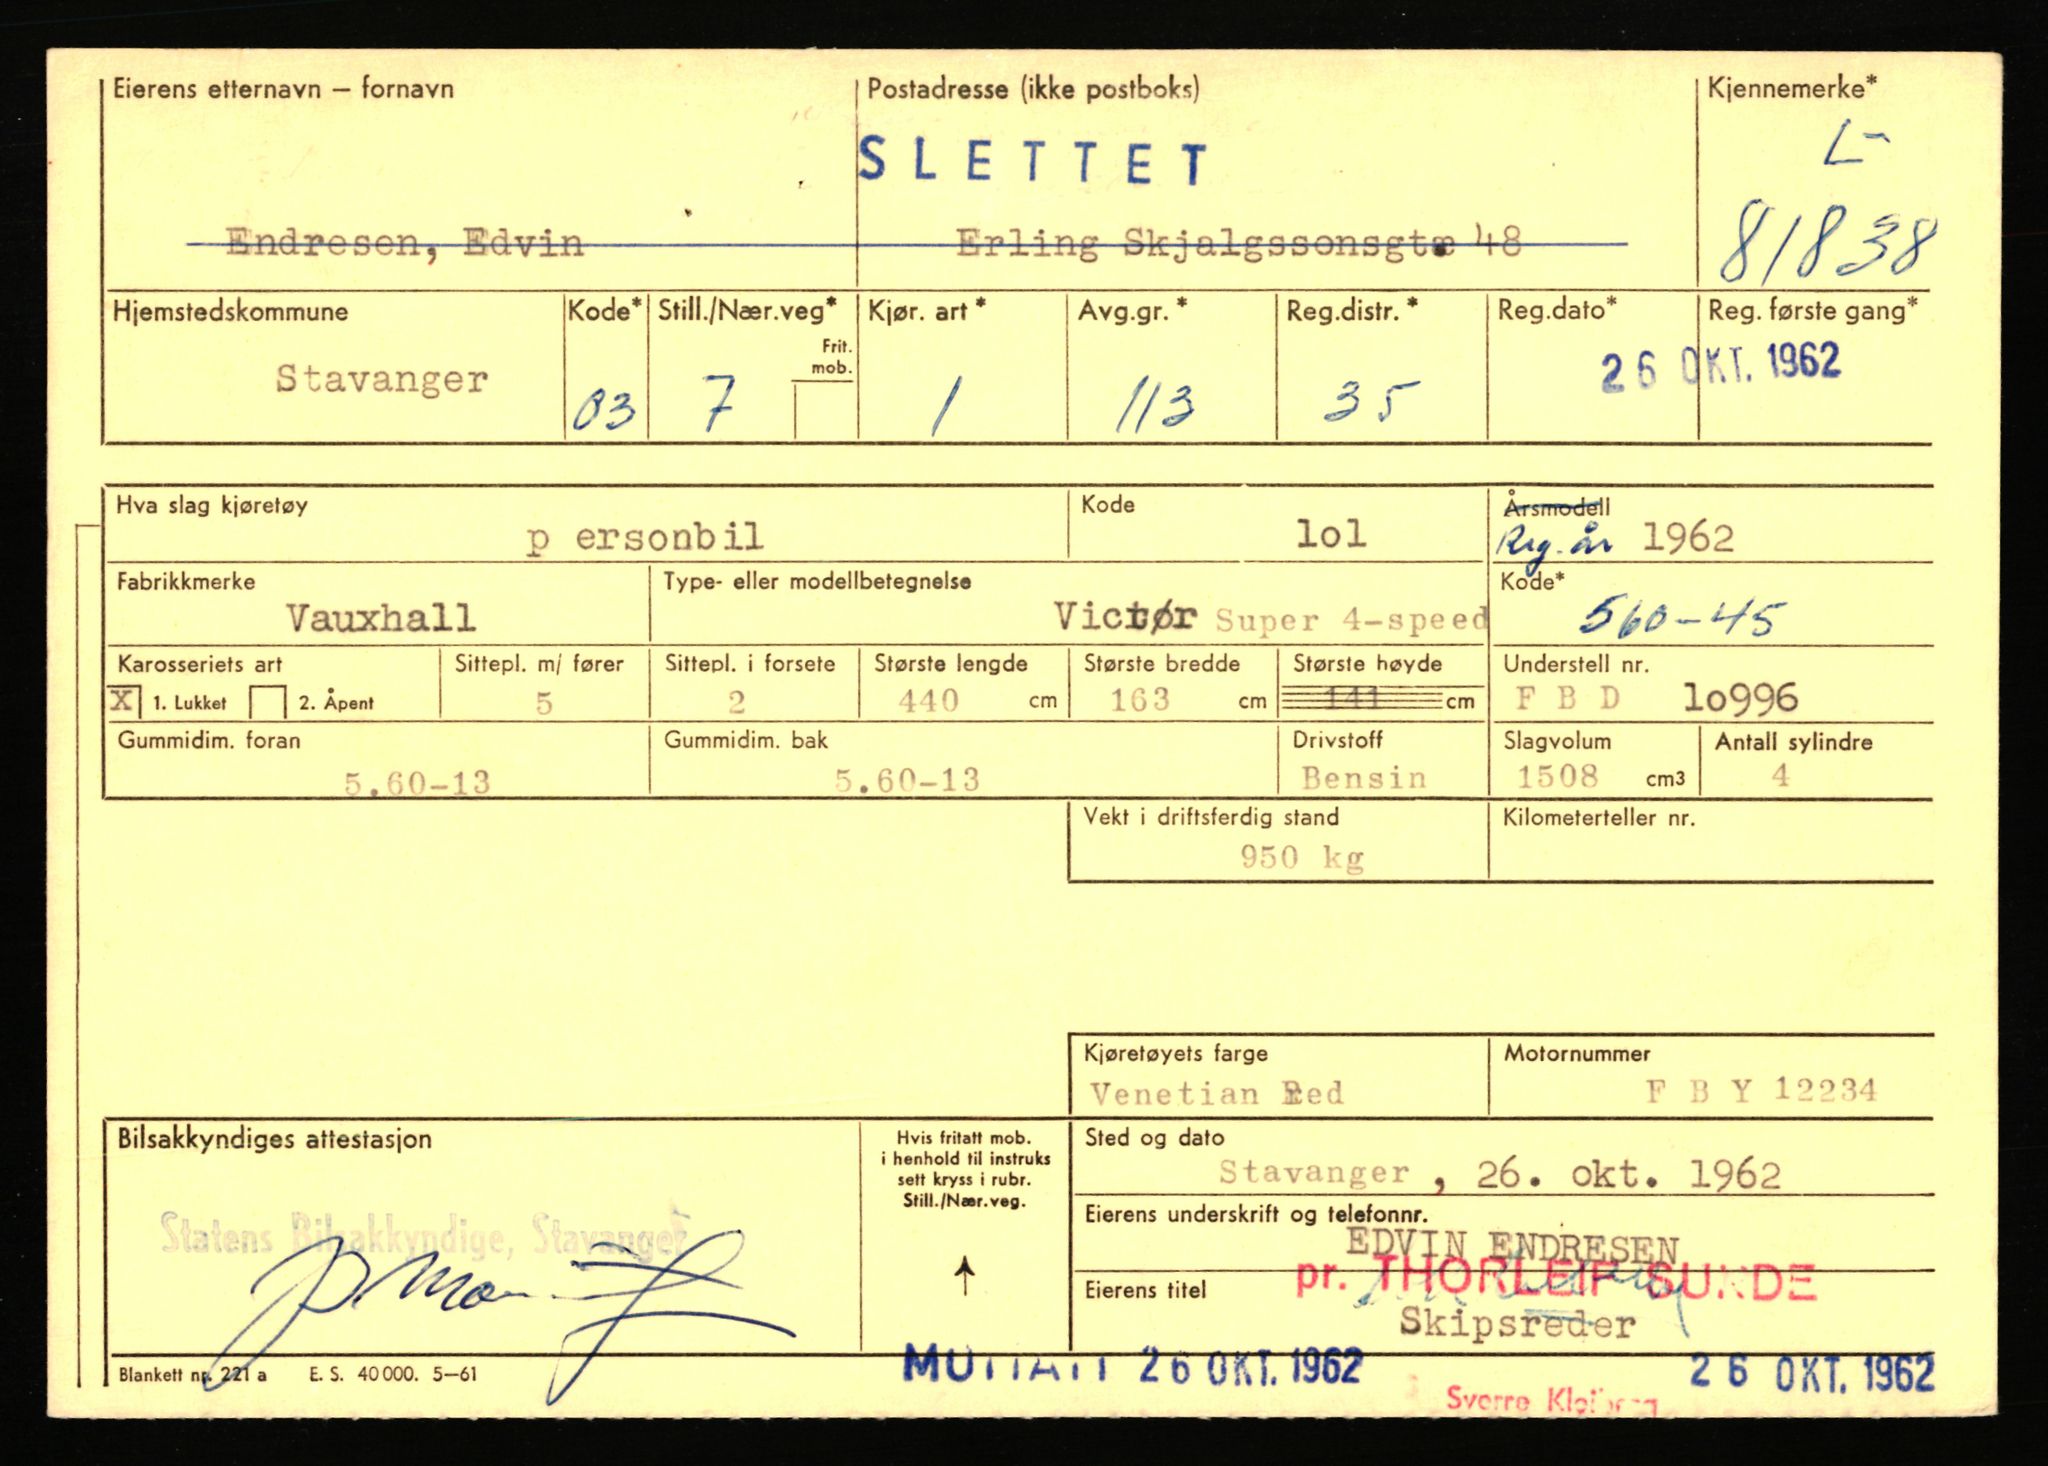 Eierens etternavn – fornavn Postadresse (ikke postboks) Kjennemerke*
SLETTET L-
Endresen, Edvin Erling Skjalgssonsgt. 48 81838
Hjemstedskommune Kode* Still./Nær.veg* Kjør. art* Avg.gr.* Reg.distr.* Reg.dato* Reg. første gang*
Frit. mob.
26 OKT. 1962
Stavanger 03 7 1 113 35
Hva slag kjøretøy Kode Årsmodell
p ersonbil lol Reg. år 1962
Fabrikkmerke Type- eller modellbetegnelse Kode*
Vauxhall Victor Super 4-speed 560-45
Karosseriets art Sittepl. m/ fører Sittepl. i forsete Største lengde Største bredde Største høyde Understell nr.
X 1. Lukket 2. Åpent 5 2 440 cm 163 cm 141 cm F B D lo996
Gummidim. foran Gummidim. bak Drivstoff Slagvolum Antall sylindre
5.60-13 5.60-13 Bensin 1508 cm3 4
Vekt i driftsferdig stand Kilometerteller nr.
950 kg
Kjøretøyets farge Motornummer
Venetian Red F B Y 12234
Bilsakkyndiges attestasjon Hvis fritatt mob. i henhold til instruks sett kryss i rubr. Still./Nær.veg. Sted og dato
Stavanger, 26. okt. 1962
Statens Bilsakkyndige, Stavanger
Eierens underskrift og telefonnr.
EDVIN ENDRESEN
pr. THORLEIF SUNDE
Eierens titel
Skipsreder
MOTTATT 26 OKT. 1962 26 OKT. 1962
Blankett nr. 221 a E. S. 40000. 5–61
Sverre